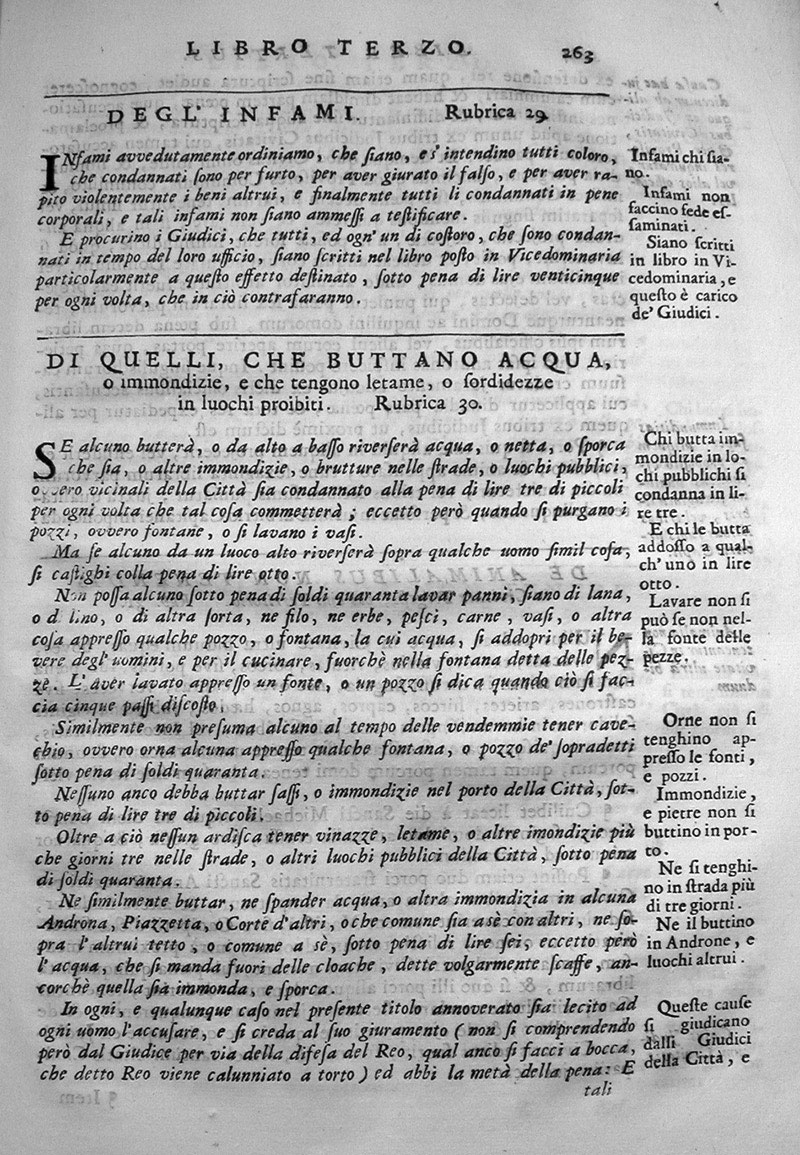 LIBRO TERZO.
263
DEGL' INFAMI. Rubrica 29.
INfami avvedutamente ordiniamo, che ſiano, e s' intendino tutti coloro,
che condannati ſono per furto, per aver giurato il falſo, e per aver ra-
pito violentemente i beni altrui, e finalmente tutti li condannati in pene
corporali, e tali infami non ſiano ammeſſi a teſtificare.
E procurino i Giudici, che tutti, ed ogn' un di coſtoro, che ſono condan-
nati in tempo del loro ufficio, ſiano ſcritti nel libro poſto in Vicedominaria
particolarmente a queſto effetto deſtinato, ſotto pena di lire venticinque
per ogni volta, che in ciò contrafaranno.
Infami chi ſia-
no.
Infami non
faccino fede eſ-
ſaminati.
Siano ſcritti
in libro in Vi-
cedominaria, e
queſto è carico
de' Giudici.
DI QUELLI, CHE BUTTANO ACQUA,
o immondizie, e che tengono letame, o ſordidezze
in luochi proibiti. Rubrica 30.
SE alcuno butterà, o da alto a baſſo riverſerà acqua, o netta, o ſporca
che ſia, o altre immondizie, o brutture nelle ſtrade, o luochi pubblici,
ovvero vicinali della Città ſia condannato alla pena di lire tre di piccoli
per ogni volta che tal coſa commetterà; eccetto però quando ſi purgano i
pozzi, ovvero fontane, o ſi lavano i vaſi.
Ma ſe alcuno da un luoco alto riverſerà ſopra qualche uomo ſimil coſa,
ſi caſtighi colla pena di lire otto.
Non poſſa alcuno ſotto pena di ſoldi quaranta lavar panni, ſiano di lana,
o d lino, o di altra ſorta, ne filo, ne erbe, peſci, carne, vaſi, o altra
coſa appreſſo qualche pozzo, o fontana, la cui acqua, ſi addopri per il be-
vere degl' uomini, e per il cucinare, fuorchè nella fontana detta delle pez-
zè. L' aver lavato appreſſo un fonte, o un pozzo ſi dica quando ciò ſi fac-
cia cinque paſſi diſcoſto.
Similmente non preſuma alcuno al tempo delle vendemmie tener cave-
chio, ovvero orna alcuna appreſſo qualche fontana, o pozzo de' ſopradetti
ſotto pena di ſoldi quaranta.
Neſſuno anco debba buttar ſaſſi, o immondizie nel porto della Città, ſot-
to pena di lire tre di piccoli.
Oltre a ciò neſſun ardiſca tener vinazze, letame, o altre imondizie più
che giorni tre nelle ſtrade, o altri luochi pubblici della Città, ſotto pena
di ſoldi quaranta.
Ne ſimilmente buttar, ne ſpander acqua, o altra immondizia in alcuna
Androna, Piazzetta, o Corte d' altri, o che comune ſia a sè con altri, ne ſo-
pra l' altrui tetto, o comune a sè, ſotto pena di lire ſei, eccetto però
l' acqua, che ſi manda fuori delle cloache, dette volgarmente ſcaffe, an-
corchè quella ſia immonda, e ſporca.
In ogni, e qualunque caſo nel preſente titolo annoverato ſia lecito ad
ogni uomo l' accuſare, e ſi creda al ſuo giuramento (non ſi comprendendo
però dal Giudice per via della difeſa del Reo, qual anco ſi facci a bocca,
che detto Reo viene calunniato a torto) ed abbi la metà della pena: E
tali
Chi butta im-
mondizie in lo-
chi pubblichi ſi
condanna in li-
re tre.
E chi le butta
addoſſo a qual-
ch' uno in lire
otto.
Lavare non ſi
può ſe non nel-
la fonte delle
pezze.
Orne non ſi
tenghino ap-
preſſo le fonti,
e pozzi.
Immondizie,
e pietre non ſi
buttino in por-
to.
Ne ſi tenghi-
no in ſtrada più
di tre giorni.
Ne il buttino
in Androne, e
luochi altrui.
Queſte cauſe
ſi giudicano
dalli Giudici
della Città, e